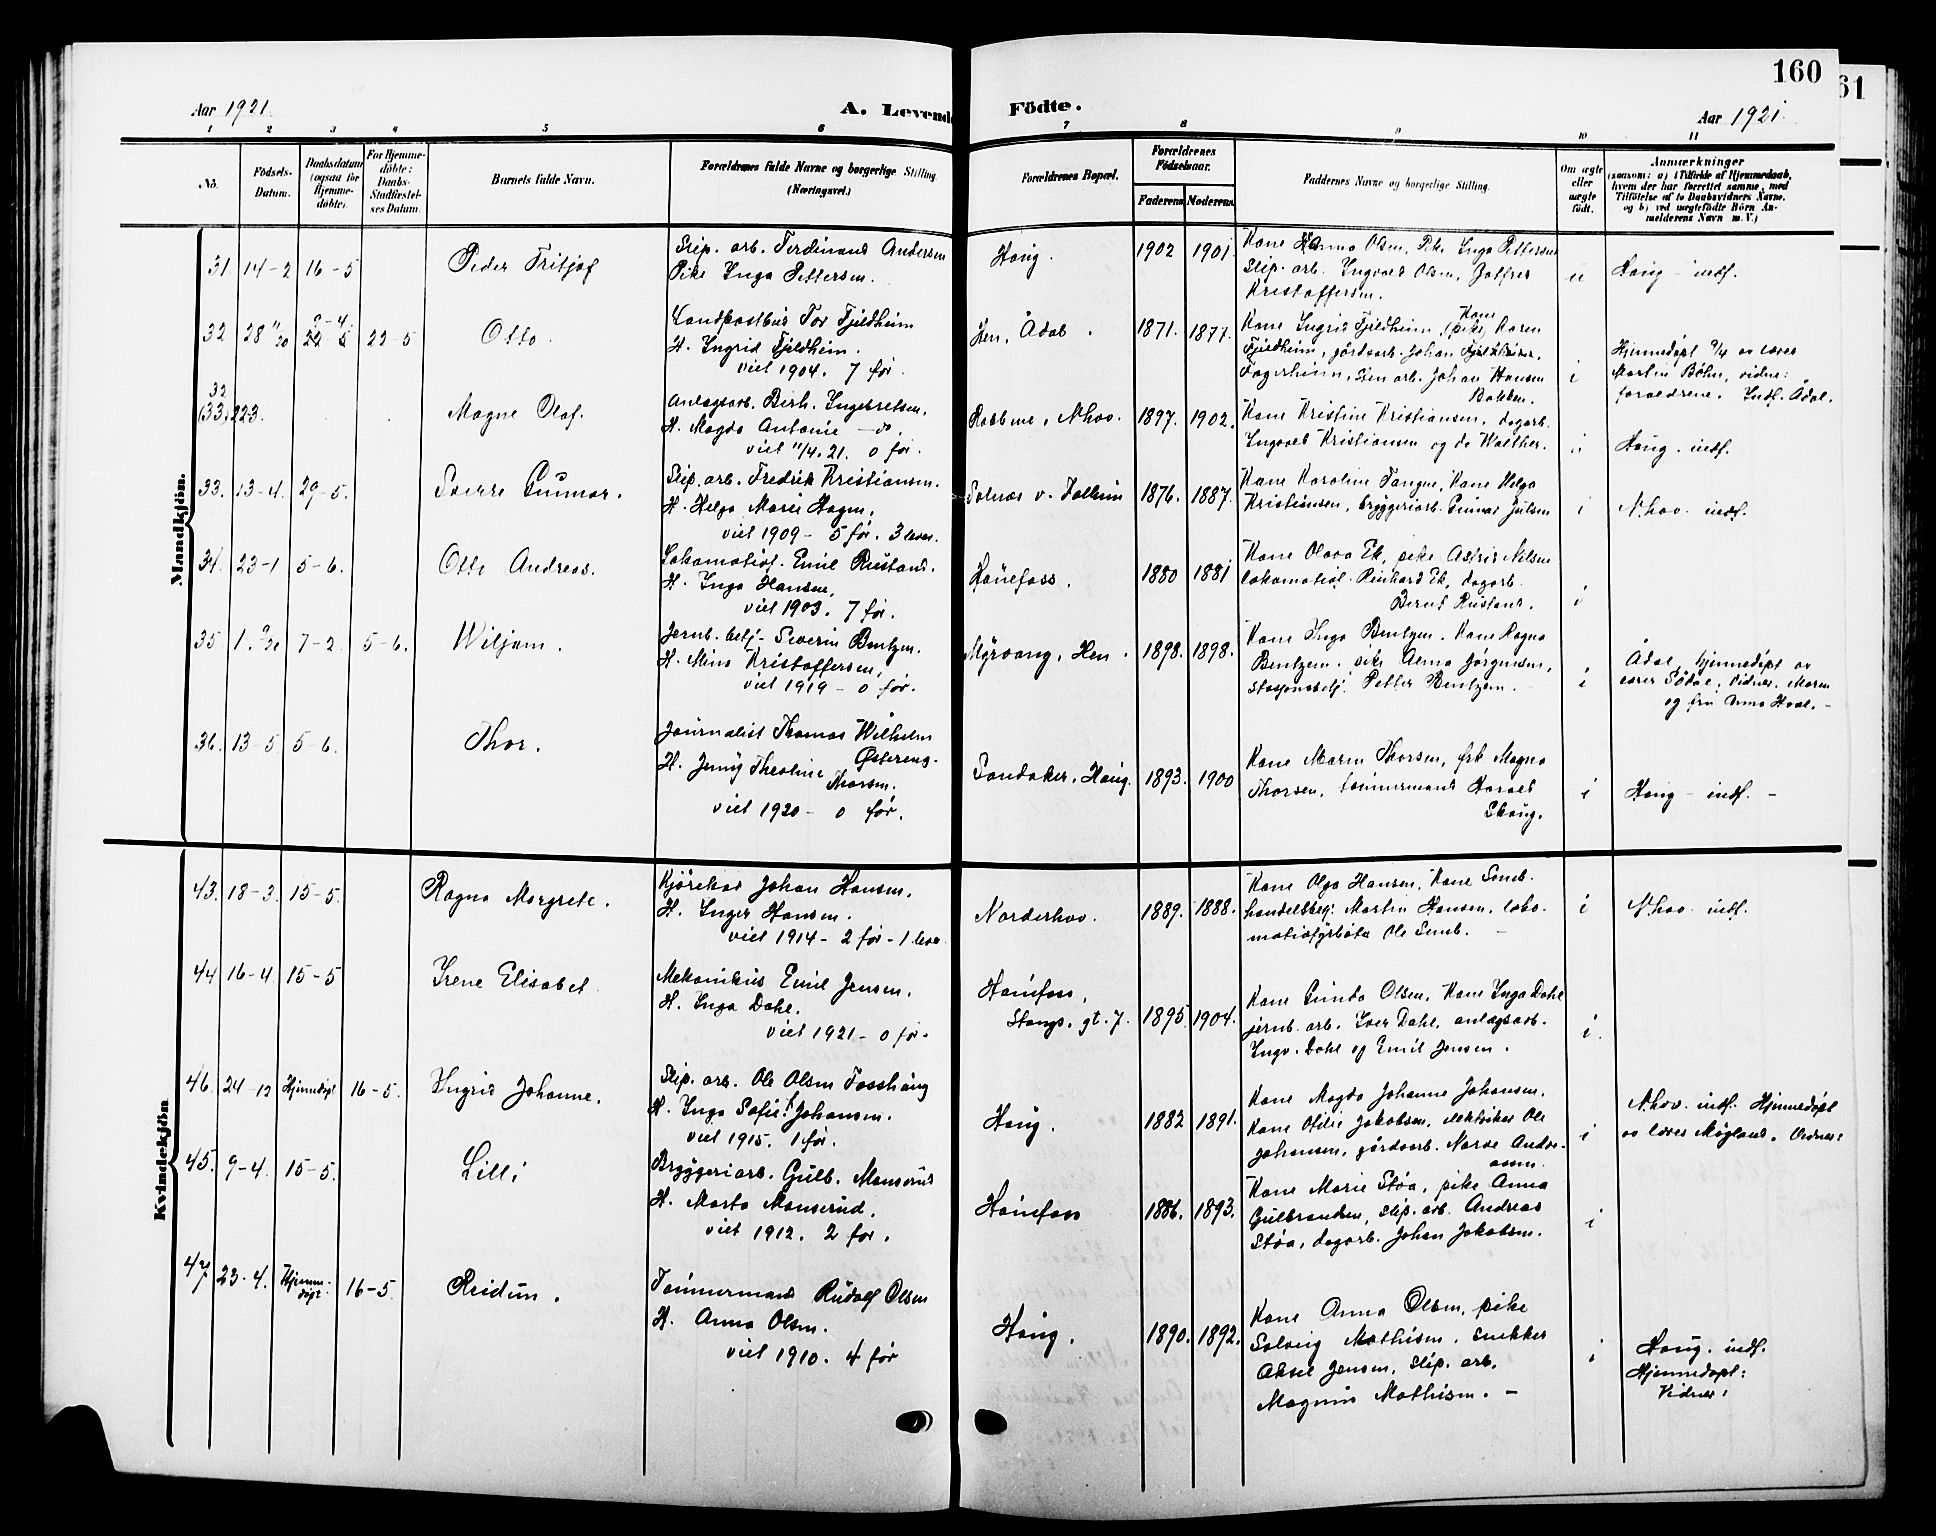 160
61
Aar 1921.
A. Levende
Födte.
Aar 1921.
1 2 3 4 5 6 7 8 9 10 11
No.
Födsels-
Datum.
Daabsdatum
(ogsaa for
Hjemme-
döbte).
For Hjemme-
döbte:
Daabs-
Stadfæstel-
ses Datum.
Barnets fulde Navn.
Forældrenes fulde Navne og borgerlige Stilling
(Næringsvei.)
Forældrenes Bopæl.
Forældrenes
Födselsaar.
Faderens Moderens
Faddernes Navne og borgerlige Stilling.
Om ægte
eller
uægte
födt.
Anmærkninger
(saasom: a) i Tilfælde af Hjemmedaab,
hvem der har forrettet samme, med
Tilföielse af to Daabsvidners Navne.
og b) ved uægtefödte Börn An-
melderens Navn m. V.)
Mandkjön.
31. 14-2 16-5 Peder Fritjof
Slip. arb. Ferdinand Andersen
Pike Inga Pettersen.
Haug. 1902 1901
Kone Hanna Olsen, Pike Inga Pettersen
Slip. arb. Ingvald Olsen,
Kristoffersen.
u Haug - indf.
32 28 11/20 22-5 Otto.
Landpostbud Tor Fjeldheim
H. Ingrid Fjeldheim.
viet 1904. 7 før.
Hen, Ådal. 1871. 1877.
Kone Ingrid Fjeldheim, (pike) Kone Karen
Fjeldheim, gårdsarb. Johan Fjeldheim,
Fagerheim, Hen arb. Johan Hansen
Bakken.
i
Hjemmedöpt 9/4 av lærer
Martin Böhn, vidner:
forældrene. Indf. Ådal.
32
(33) 22 3. Magne Olaf.
Anlægsarb. Birh. Ingebretsen.
H. Magda Antonie - do.
viet 11/4.21. 0 før.
N.hov. 1897. 1902.
Kone Kristine Kristiansen, dagarb.
Ingvald Kristiansen og do Walther.
Haug. indf.
33. 13-4. 29-5. Sverre Gunnar.
Slip. arb. Fredrik Kristiansen.
H. Helga Marie Hagen,
viet 1909 - 5 før. 3 lever.
1876. 1887.
Kone Karoline Tangen, Kone Helga
Kristiansen, bryggeriarb. Gunnar Julsen
i N.hov. indf.
34. 23-1 5-6. Otto Andreas.
Lokomotivf. Emil Rustand.
H. Inga Hansen,
viet 1903. 7 før.
Hönefoss. 1880 1881
Kone Olava Ek, pike Astrid Nilsen
lokomotivf. Reinhard Ek, dagarb.
Bernt Rustand.
i
35. 1. 9/20 7-2. 5-6. Wiljam.
Jernb. betj. Severin Bentzen.
H. Mina Kristoffersen,
viet 1919 - 0 før.
Myrvang, Hen. 1898. 1898.
Kone Inga Bentzen. Kone Ragna
Bentzen. pike Anna Jörgensen,
stasjonsbetj. Petter Bentzen.
i
Ådal, hjemmedöpt av
lærer Södal. Vidner. Maren
og fru Anna Hval. -
36. 13-5 5-6. Thor.
Journalist Thomas Wilhelm
Östereng.
H. Jenny Theoline
Thorsen.
viet 1920 - 0 før.
Sandaker, Haug. 1893. 1900
Kone Maren Thorsen, frk Magna
Thorsen, tömmermand Harald
Skaug.
i Haug - indf. -
Kvindekjön
43. 18-3. 15-5. Ragna Margrete.
Kjörekar Johan Hansen.
H. Inger Hansen.
viet 1914 - 2 før - 1 lever
Norderhov. 1889. 1888.
Kone Olga Hansen, Kone Semb.
handelsbetj. Martin Hansen, loko-
motivfyrböter Ole Semb. -
i N.hov. indf.
44 16-4 15-5 Irene Elisabet.
Mekanikus Emil Jensen.
H. Inga Dahl.
viet 1921 - 0 før.
Hönefoss,
Stangs. gt. 7. 1895 1904.
Kone Gunda Olsen, Kone Inga Dahl
jernb. arb. Iver Dahl, anlægsarb.
Ingv. Dahl og Emil Jensen.
i.
46. 24-12 Hjemmedöpt 16-5. Ingrid Johanne.
Slip. arb. Ole Olsen Fosshaug
H. Inga Sofie f. Johansen.
viet 1915. 1 før.
Haug. 1882 1891.
Kone Magda Johanne Johansen,
Kone Otilie Jakobsen, elektriker Ole
Johansen, gårdsarb. Narve Andre-
assen.
i
N.hov. indf. Hjemmedöpt
av lærer Mogland. Vidner:
45. 9-4. 15-5. Lilli
Bryggeriarb. Gulb. Monserud
H. Marta Monserud.
viet 1912. 2 før.
Hönefoss 1886. 1893.
Kone Marie Støa, pike Anna
Gulbrandsen, slip. arb. Andreas
Støa, dagarb. Johan Jakobsen.
i
47 23-4. Hjemme-
döpt. 16-5. Reidun.
Tömmermand Rudolf Olsen
H. Anna Olsen.
viet 1910. 4 før
Haug. 1890. 1892.
Kone Anna Olsen, pike
Solveig Mathisen, snekker
Aksel Jensen, slip. arb.
Magnus Mathisen. -
i
Haug. indf.
Hjemmedöpt:
Vidner: